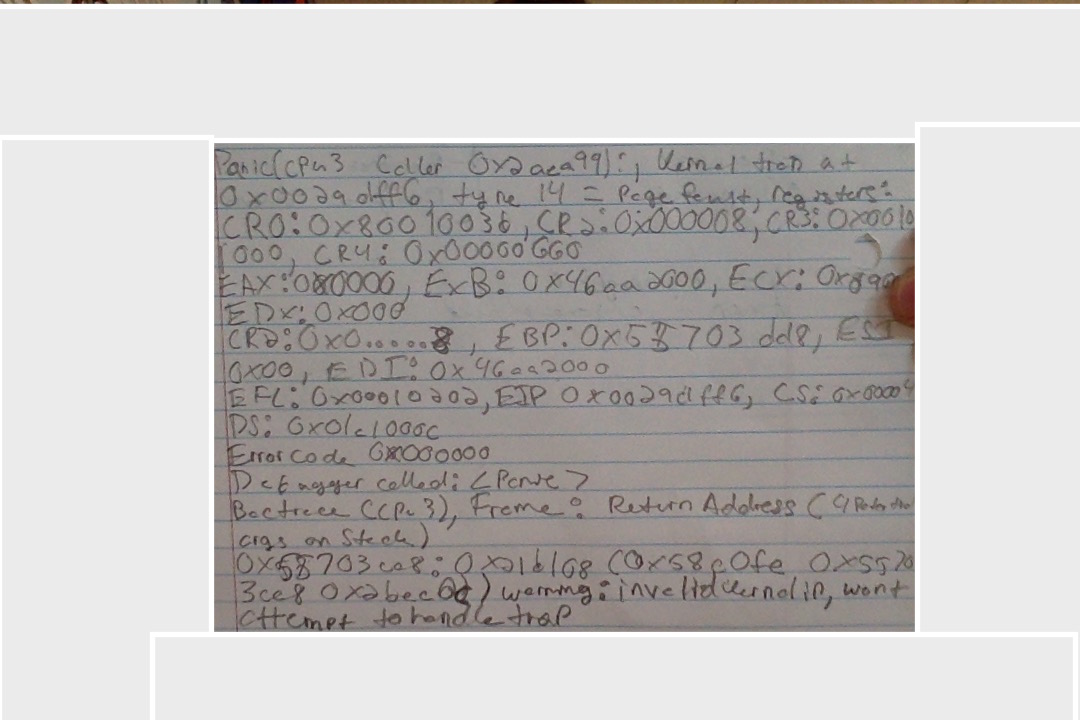 Panic(cpu3 Caller 0x2aea99):, Kernel trap at
0x0029dff6, type 14 = Page fault, registers:
CR0: 0x80010036, CR2: 0x000008, CR3: 0x0010
1000, CR4: 0x00000660
EAX: 0x0000, ExB: 0x46aa2000, ECX:
EDx: 0x000
CR2: 0x0.....8, EBP: 0x58703dd8, ESI
0x00, EDI: 0x46aa2000
EFL: 0x00010202, EIP 0x0029dff6, CS: 0x0000
DS: 0x01c1000c
Error code 0x000000
called:
(CPu 3), Frame: Return Address (4
args on Stack)
0x58703ca8: 0x21b108 (0x58c0fe 0x5570
3ce8 warning: invalid kernel ip, wont
attempt to handle trap